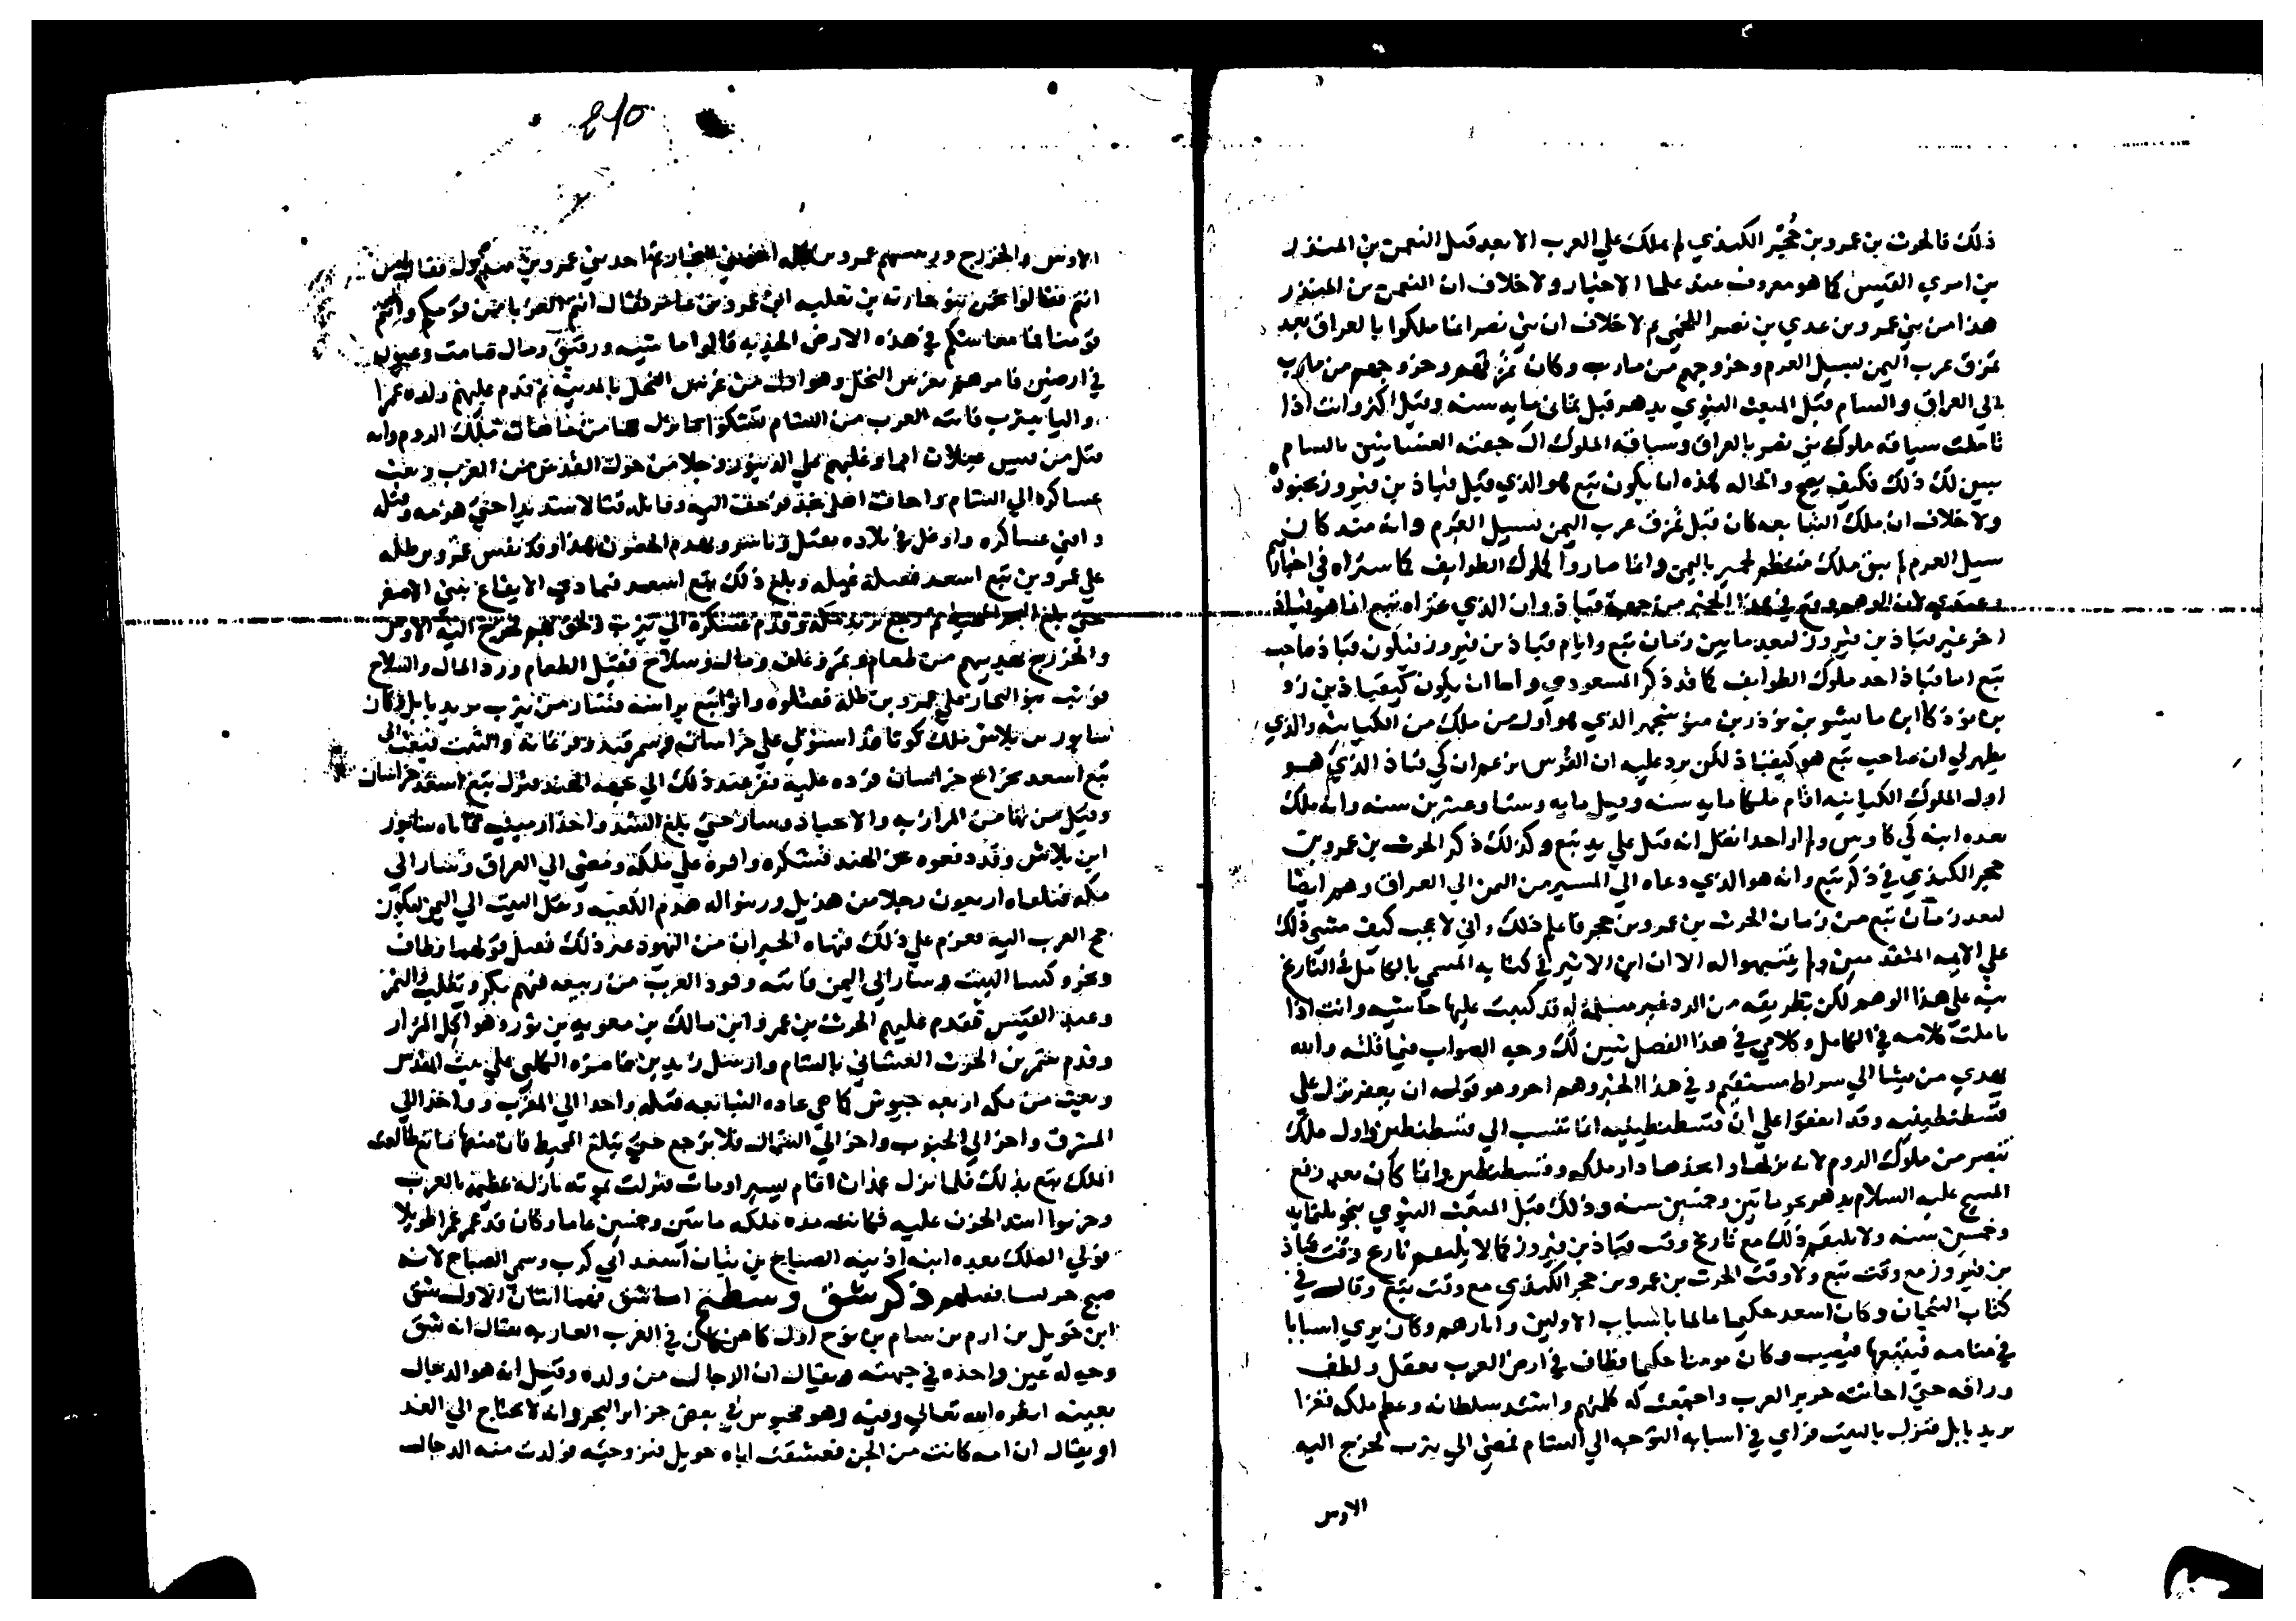 ذلك فالحرث بن عمرو بن حُجْر الكندي لم يملك علي العرب الا بعد قتل النعمن بن المنذر
بن امري القيس كما هو معروف عند علما الاخبار ولا خلاف ان النعمن بن المنذر
هذا من بني عمرو بن عدي بن نصر اللخمي ولا خلاف ان بني نصر انما ملكوا بالعراق بعد
تمزق عرب اليمن بسيل العرم وخروجهم من مارب وكان تمزقهم وخروجهم من مارب
الي العراق والشام قبل المبعث النبوي بدهر قيل ثمان مايه سنه وقيل اكثر وانت اذا
تاملت سياقه ملوك بني نصر بالعراق وسياقه الملوك ال جفنه الغسانيين بالشام
تبين لك ذلك فكيف يصح والحاله هذه ان يكون تبع هو الذي قتل قباذ بن فيروز
ولا خلاف ان ملك التبابعه كان قبل تمزق عرب اليمن بسيل العرم وانه منذ كان
سيل العرم لم يبق ملك منتظم لحمير باليمن وانما صاروا كملوك الطوايف كما ستراه في اخبارهم
وعندي ان الوهم وقع في هذا الخبر من جهة قباذ وان الذي غزاه تبع انما هو قباذ
اخر غير قباذ بن فيروز لبعد ما بين زمان تبع وايام قباذ بن فيروز فيكون قباذ صاحب
تبع اما قباذ احد ملوك الطوايف كما قد ذكر المسعودي واما ان يكون كيقباذ بن زو
بن بوذكا ابن مايشو بن نوذر بن منوشجهر الذي هو اول من ملك من الكيانيه والذي
يظهر لي ان صاحب تبع هو كيقباذ لكن يرد عليه ان الفرس تزعم ان كي قباذ الذي هو
اول الملوك الكيانيه اقام ملكا مايه سنه وقيل مايه وستا وعشرين سنه وانه ملك
بعده ابنه كي كاوس ولم ار احدا نقل انه قتل علي يد تبع وكذلك ذكر الحرث بن عمرو بن
حجر الكندي في ذكر تبع وانه هو الذي دعاه الي المسير من اليمن الي العراق وهم ايضا
لبعد زمان تبع من زمان الحرث بن عمرو بن حجر فاعلم ذلك واني لاعجب كيف مشي ذلك
علي الايمه المتقدمين ولم يتنبهوا له الا ان ابن الاثير في كتابه المسمي بالكامل في التاريخ
نبه علي هذا الوهم لكن بطريقه من الرد غير مسلمة له قد كتبت عليها حاشيه وانت اذا
تاملت كلامه في الكامل وكلامي في هذا الفصل تبين لك وجه الصواب فيما قلته والله
يهدي من يشا الي سراط مستقيم وفي هذا الخبر وهم اخر وهو قوله ان يعفر نزل علي
قسطنطينيه وقد اتفقوا علي ان قسطنطينيه انما تنسب الي قسطنطين اول ملك
تنصر من ملوك الروم لانه نزلها واتخذها دار ملكه وقسطنطين انما كان بعد رفع
المسيح عليه السلام بدهر نحو مايتين وخمسين سنه وذلك قبل المبعث النبوي بنحو ثلثمايه
وخمسين سنه ولا يلتيم ذلك مع تاريخ وقت قباذ بن فيروز كما لا يلتيم تاريخ وقت قباذ
بن فيروز مع وقت تبع ولا وقت الحرث بن عمرو بن حجر الكندي مع وقت تبع وقال في
كتاب التيجان وكان اسعد حكيما عالما باسباب الاولين واثارهم وكان يري اسبابا
في منامه فيتبعها فيصيب وكان مومنا حكيما فطاف في ارض العرب بعقل ولطف
ورافه حتي اجابته جزير العرب واجتمعت له كلمتهم واشتد سلطانه وعظم ملكه فغزا
يريد بابل فنزل بالبيت فراي في اسبابه التوجه الي الشام فمضي الي يثرب لخرج اليه
الاوس
الاوس والخزرج وريسهم عمرو بن طله اخو بني النجار ثم احد بني عمرو بن مبذول فقال لمن
انتم فقالوا نحن بنو حارثه بن ثعلبه ابن عمرو بن عامر فقال انتم العز يا يمن قومكم وانتم
قومنا فما معاشكم في هذه الارض الجدبه قالوا ماشيه ورقيق ومال صامت وعيون
في ارضين فامرهم بغرس النخل وهو اول من غرس النخل بالمدينه ثم قدم عليهم ولده عمرا
واليا بيثرب فاتته العرب من الشام تشتكوا ما نزل بها من ملك الروم وانه
وغلبهم علي الدينور وجلا من حول القدس من العرب وبعث
عساكره الي الشام واجابت اهل نجد فزحفت اليه وقاتله قتالا شديدا حتي هزمه وقتله
وافني عساكره واوغل في بلاده بقتل وباسر ويهدم الحصون وقد نفس عمرو بن طله
علي عمرو بن تبع اسعد فقتله غيله وبلغ ذلك تبع اسعد فتمادي الايقاع ببني الاصفر
حتي بلغ البحر المحيط ثم رجع يريد مكه وقدم عسكره الي يثرب ولحق بهم فخرج اليه الاوس
والخزرج بهديتهم من طعام وتمر وعلف ومال وسلاح فقبل الطعام ورد المال والسلاح
فوثب بنو النجار علي عمرو بن طله فقتلوه واتوا تبع براسه فسار من يثرب يريد بابل وكان
سابور بن بلاش ملك كوثا قد استولي علي خراسان وسمرقند وفرغانه والتبت فبعث الي
تبع اسعد بخراج خراسان فرده عليه ففر عند ذلك الي جهه الهند فنزل تبع اسعد خراسان
وقتل من بها من المرازبه والاحباذ وسار حتي بلغ السند واخذ ارمينيه فاتاه سابور
ابن بلاش وقد دفعوه عن الهند فشكره واقره علي ملكه ومضي الي العراق وسار الي
مكه فتلقاه اربعون رجلا من هذيل وزينوا له هدم الكعبه ونقل البيت الي اليمن ليكون
حج العرب اليه فعزم علي ذلك فنهاه الحبران من اليهود عن ذلك فقبل قولهما وطاف
ونحر وكسا البيت وسار الي اليمن فاتته وفود العرب من ربيعه فيهم بكر وتغلب والنمر
وعبد القيس فقدم عليهم الحرث بن عمرو ابن مالك بن معويه بن ثور وهو اكل المرار
وقدم شمر بن الحرث الغساني بالشام وارسل زيد بن نماضره الكلبي علي بيت المقدس
وبعث من مكه اربعه جيوش كما هي عاده التبابعه قبله واحدا الي المغرب وواحد الي
المشرق واخر الي الجنوب واخر الي الشمال فلا يرجع حتي يبلغ المحيط فان منعها مانع طالعت
الملك تبع بذلك فلما نزل غمدان اقام يسيرا ومات فنزلت بموته نازله عظيمه بالعرب
وحزنوا اشد الحزن عليه فكانت مده ملكه مايتين وخمسين عاما وكان قد عمر عمرا طويلا
فولي الملك بعده ابنه اذينه الصباح بن تبان اسعد ابي كرب وسمي الصباح لانه
صبح حولسا فقتلهم ذكر شق وسطيح اما شق فهما اثنان الاول شق
ابن حويل بن ارم بن سام بن نوح اول كاهن كان في العرب العاربه يقال انه شق
وجهه له عين واحده في جبهته ويقال ان الدجال من ولده وقيل انه هو الدجال
بعينه انظره الله تعالي وفيه وهو محبوس في بعض جزاير البحر وانه لا يحتاج الي الغذ
او يقال ان امه كانت من الجن فعشقت اباه حويل فتزوجته فولدت منه الدجال